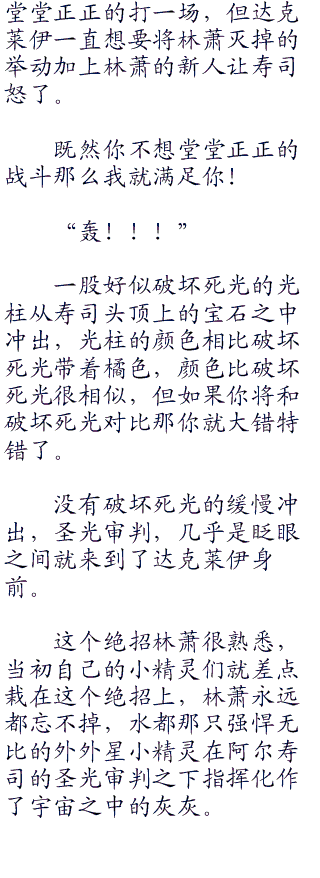 堂堂正正的打一场，但达克
莱伊一直想要将林萧灭掉的
举动加上林萧的新人让寿司
怒了。
既然你不想堂堂正正的
战斗那么我就满足你！
“轰！！！”
一股好似破坏死光的光
柱从寿司头顶上的宝石之中
冲出，光柱的颜色相比破坏
死光带着橘色，颜色比破坏
死光很相似，但如果你将和
破坏死光对比那你就大错特
错了。
没有破坏死光的缓慢冲
出，圣光审判，几乎是眨眼
之间就来到了达克莱伊身
前。
这个绝招林萧很熟悉，
当初自己的小精灵们就差点
栽在这个绝招上，林萧永远
都忘不掉，水都那只强悍无
比的外外星小精灵在阿尔寿
司的圣光审判之下指挥化作
了宇宙之中的灰灰。